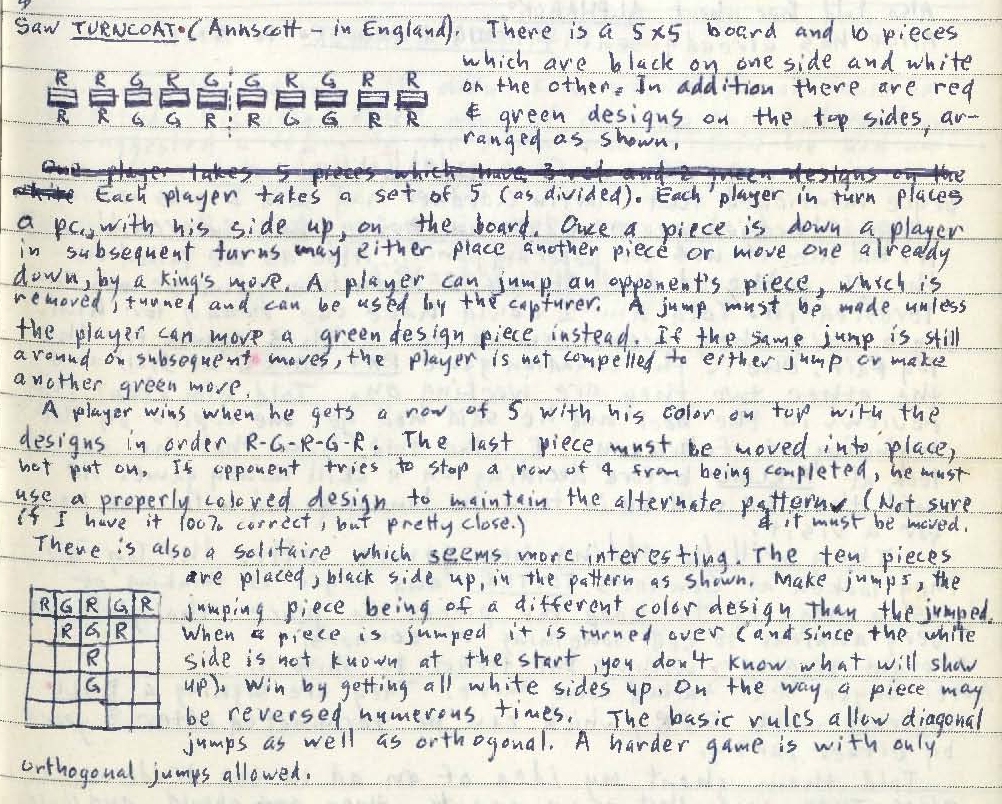 Saw TURNCOAT. (Annscott - in England). There is a 5x5 board and 10 pieces
which are black on one side and white
R R G R G G R G R R
on the other. In addition there are red
R R G G R R G G R R
& green designs on the top sides, ar-
ranged as shown.
One player takes 5 pieces which have 3 red and 2 green designs on the
white Each player takes a set of 5 (as divided). Each player in turn places
a pc., with his side up, on the board. Once a piece is down a player
in subsequent turns may either place another piece or move one already
down, by a king's move. A player can jump an opponent's piece, which is
removed, turned and can be used by the capturer. A jump must be made unless
the player can move a green design piece instead. If the same jump is still
around on subsequent moves, the player is not compelled to either jump or make
another green move.
A player wins when he gets a row of 5 with his color on top with the
designs in order R-G-R-G-R. The last piece must be moved into place,
not put on. If opponent tries to stop a row of 4 from being completed, he must
use a properly colored design to maintain the alternate pattern (Not sure
if I have it 100% correct, but pretty close.) & it must be moved.
There is also a solitaire which seems more interesting. The ten pieces
are placed, black side up, in the pattern as shown. Make jumps, the
R G R G R jumping piece being of a different color design than the jumped.
R G R When a piece is jumped it is turned over (and since the white
R side is not known at the start, you don't know what will show
G up). Win by getting all white sides up. On the way a piece may
be reversed numerous times. The basic rules allow diagonal
jumps as well as orthogonal. A harder game is with only
orthogonal jumps allowed.